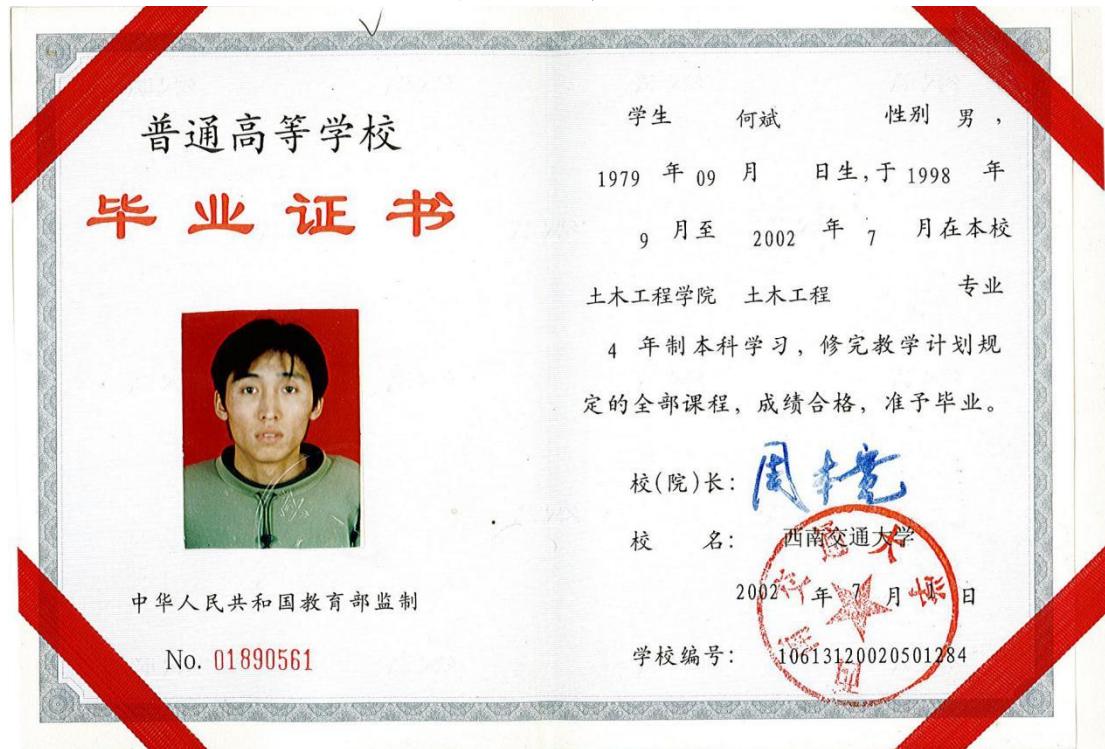 普通高等学校
毕业证书
中华人民共和国教育部监制
No. 01890561
学生 何斌 性别 男，
1979 年 09 月 日生，于 1998 年
9 月至 2002 年 7 月在本校
土木工程学院 土木工程 专业
4 年制本科学习，修完教学计划规
定的全部课程，成绩合格，准予毕业。
校(院)长：
校 名： 西南交通大学
2002 年 7 月 1 日
学校编号： 106131200205012​84
西南交通大学